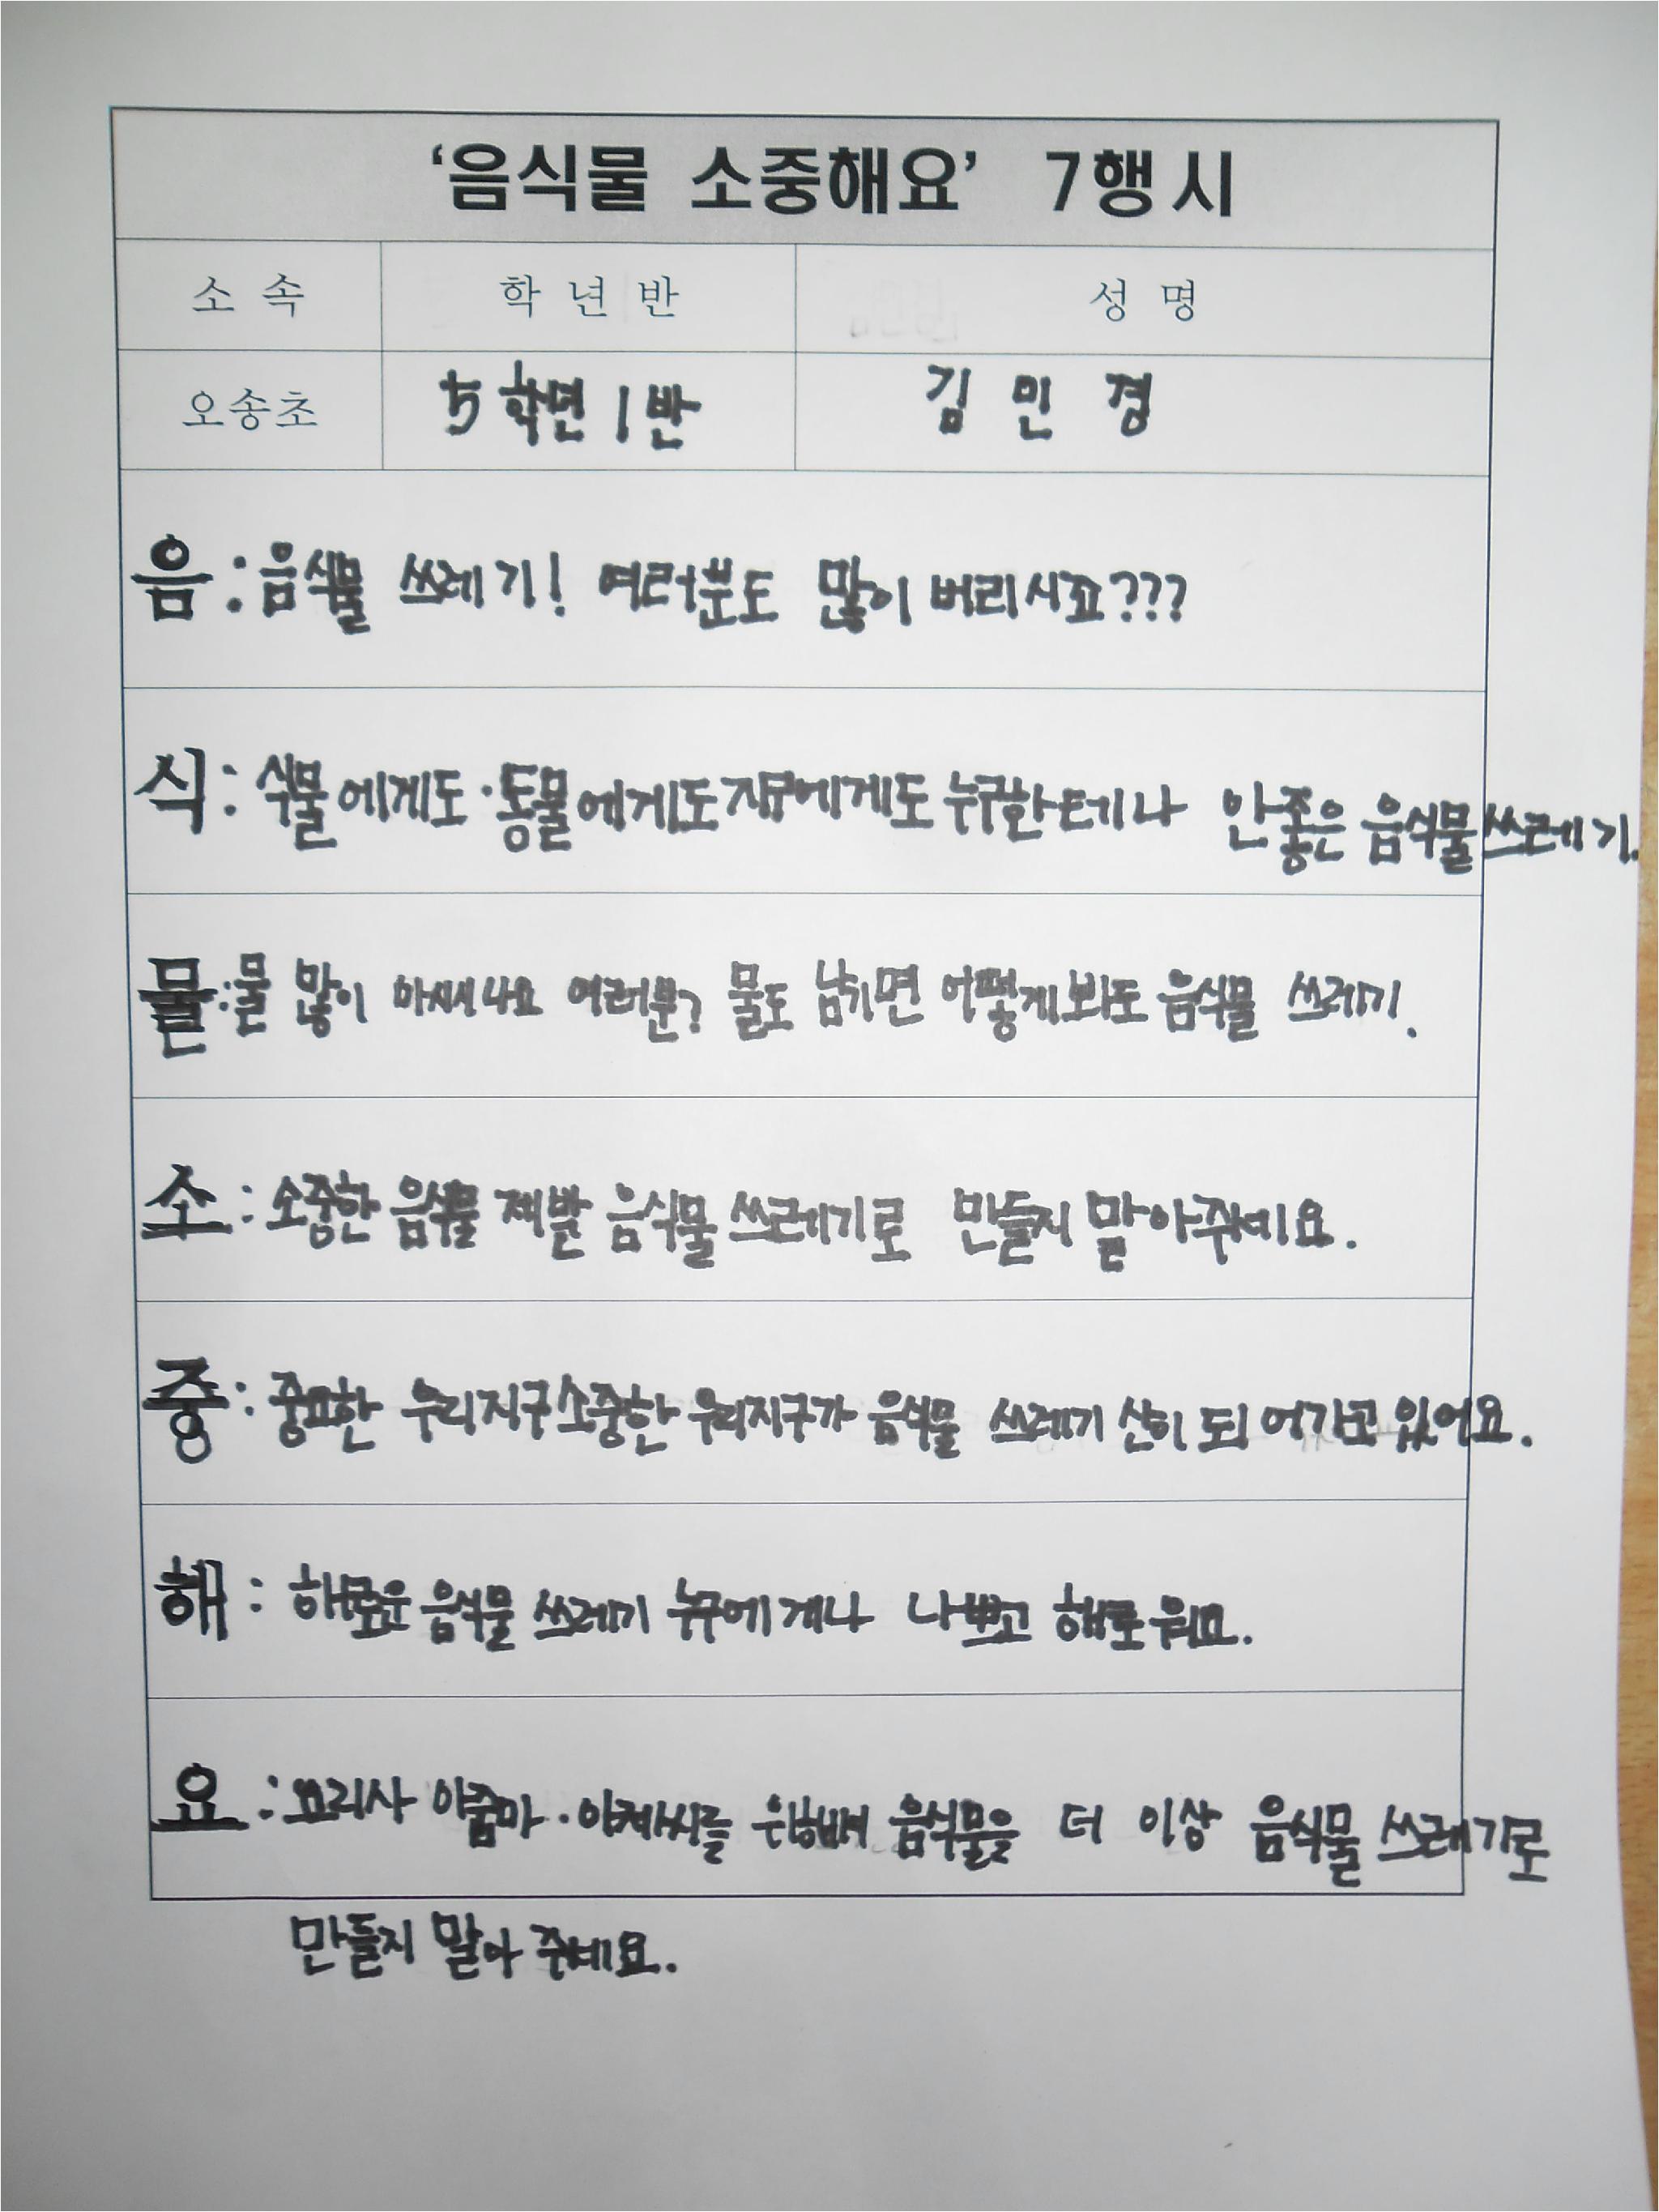 ‘음식물 소중해요’ 7행시
소 속 학 년 반 성 명
오송초 5학년 1반 김 민 경
음 : 음식물 쓰레기! 여러분도 많이 버리시죠???
식 : 식물에게도·동물에게도 지구에게도 누구한테나 안좋은 음식물쓰레기.
물 : 물 많이 마시나요 여러분? 물도 남기면 어떻게봐도 음식물 쓰레기.
소 : 소중한 음식물 제발 음식물 쓰레기로 만들지 말아주세요.
중 : 중요한 우리지구 소중한 우리지구가 음식물 쓰레기 산이 되어가고 있어요.
해 : 해로운 음식물 쓰레기 누구에게나 나쁘고 해로워요.
요 : 요리사 아줌마·아저씨를 위해서 음식물을 더 이상 음식물 쓰레기로
만들지 말아 주세요.